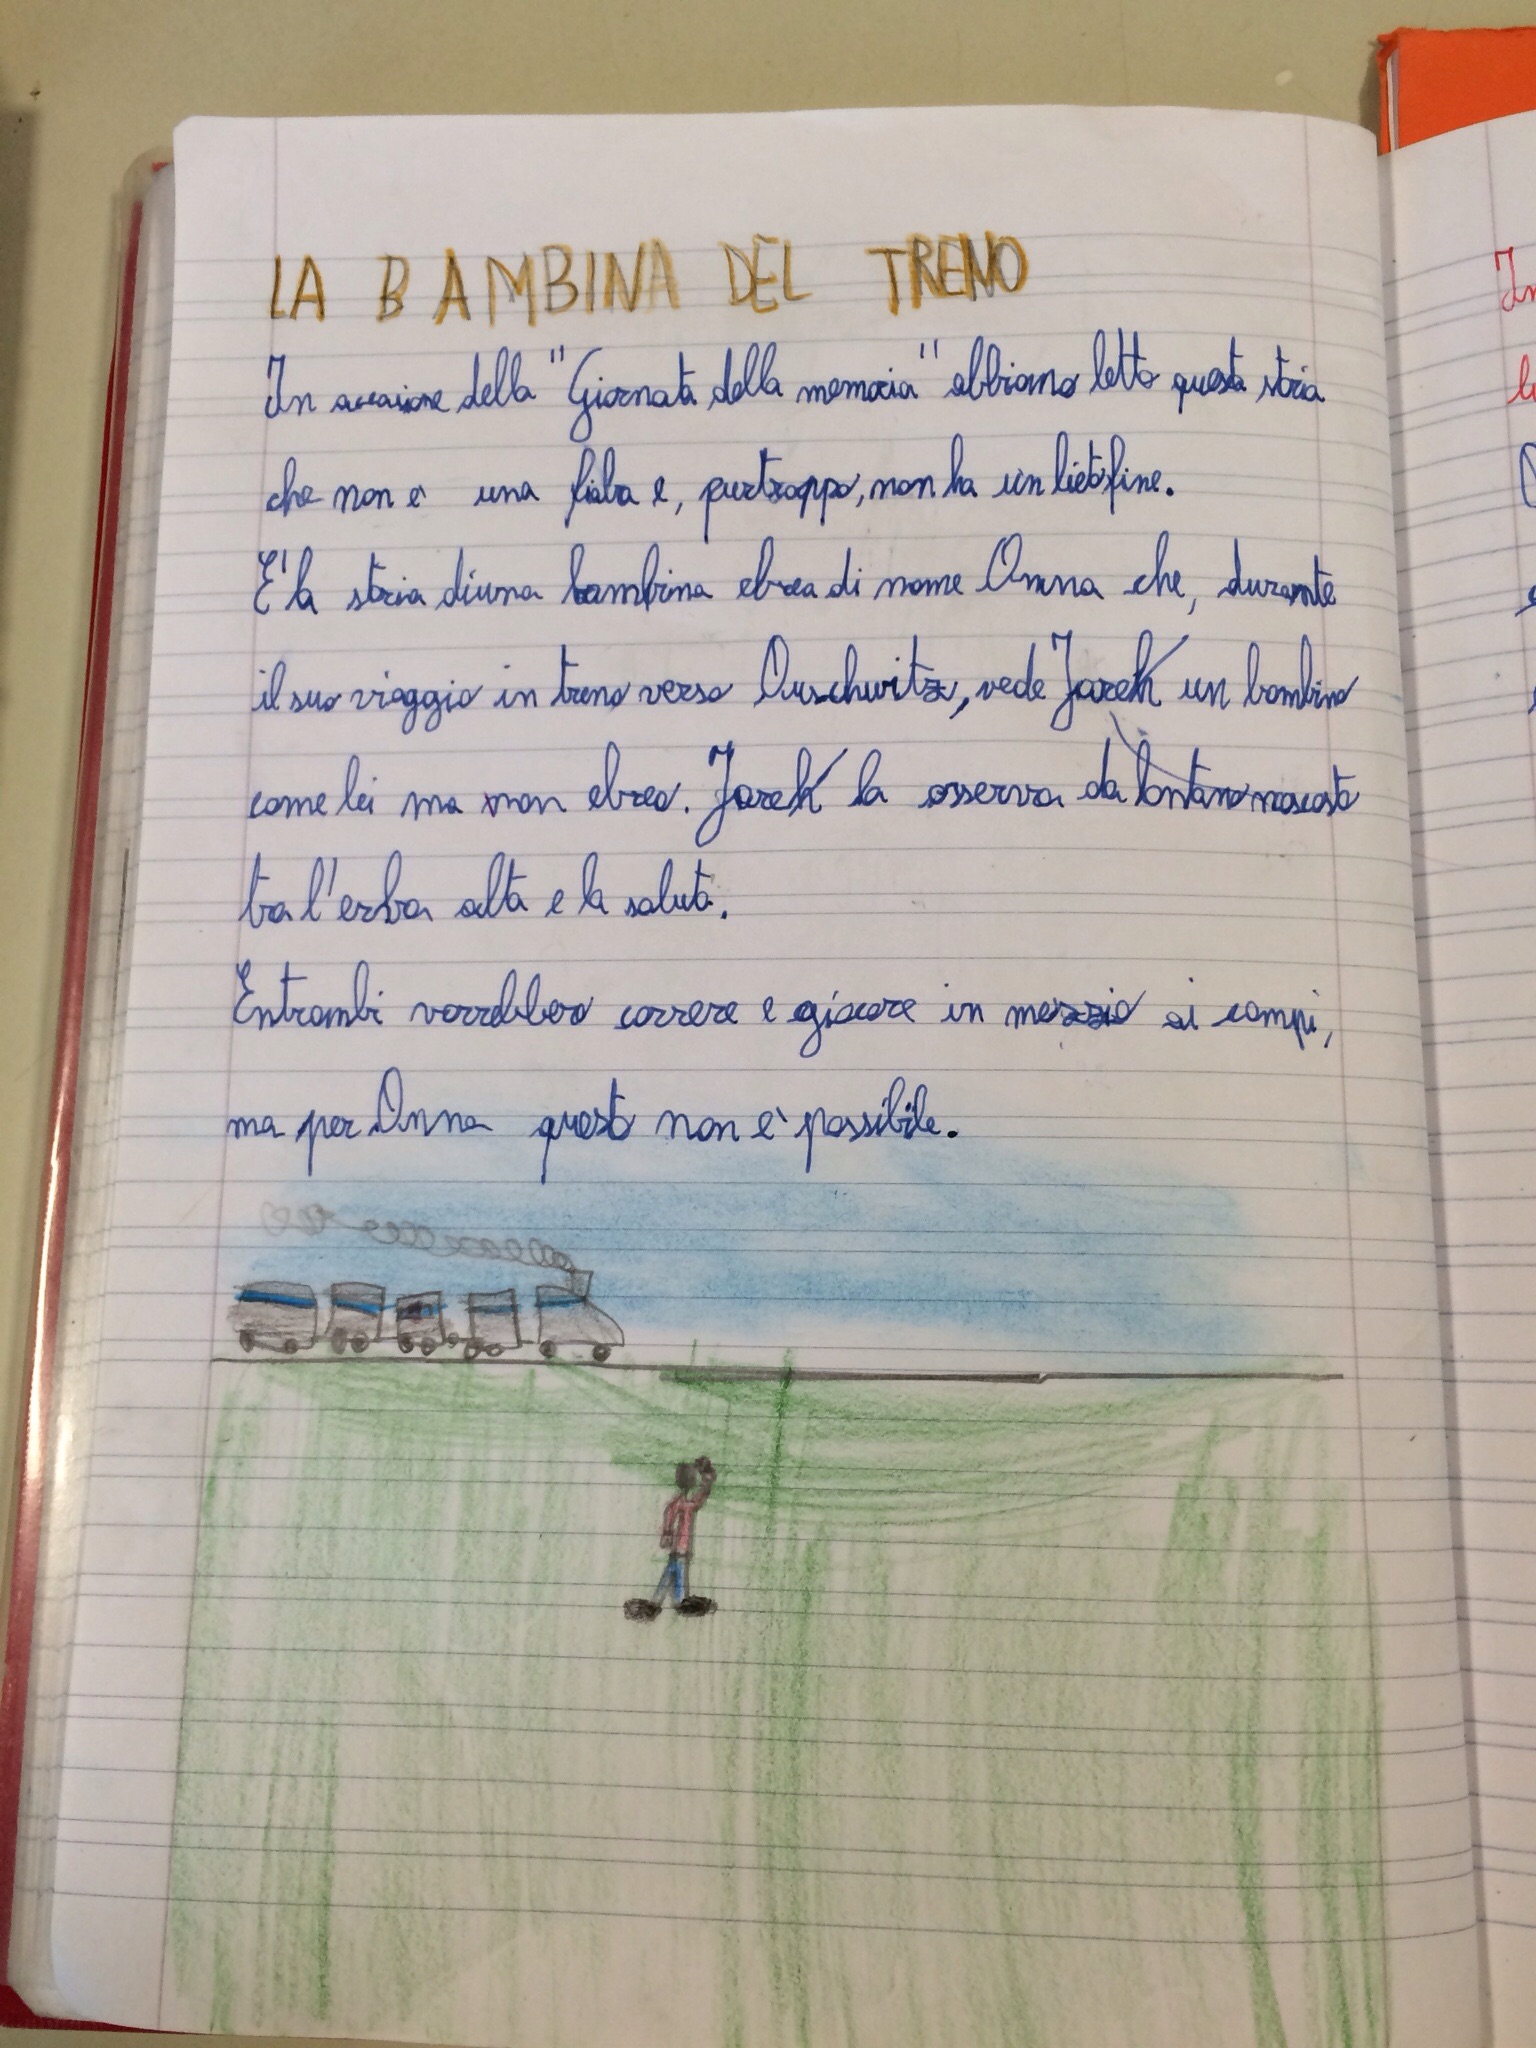 LA BAMBINA DEL TRENO
In occasione della "Giornata della memoria" abbiamo letto questa storia
che non è una fiaba e, purtroppo, non ha un lieto fine.
E' la storia di una bambina ebrea di nome Anna che, durante
il suo viaggio in treno verso Auschwitz, vede Jarek un bambino
come lei ma non ebreo. Jarek la osserva da lontano nascosto
tra l'erba alta e la saluta.
Entrambi vorrebbero correre e giocare in mezzo ai campi,
ma per Anna questo non è possibile.
In